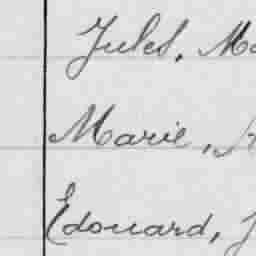 Jules, Ma
Marie, A
Edouard, J